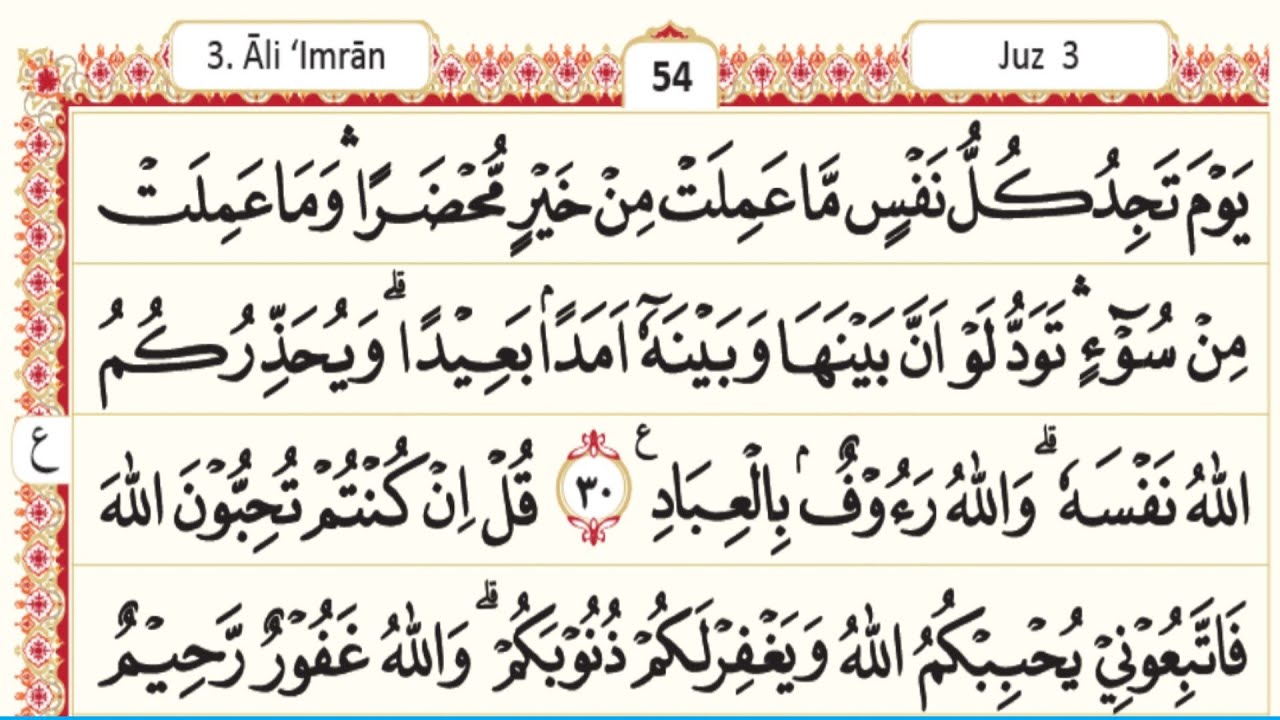 3. Āli ‘Imrān
54
Juz 3
يَوْمَ تَجِدُ كُلُّ نَفْسٍ مَّا عَمِلَتْ مِنْ خَيْرٍ مُّحْضَرًا ۛ وَمَا عَمِلَتْ
مِنْ سُوْۤءٍ ۛ تَوَدُّ لَوْ اَنَّ بَيْنَهَا وَبَيْنَهٗٓ اَمَدًاۢ بَعِيْدًا ۗ وَيُحَذِّرُكُمُ
اللّٰهُ نَفْسَهٗ ۗ وَاللّٰهُ رَءُوْفٌۢ بِالْعِبَادِ ࣖ ٣٠ قُلْ اِنْ كُنْتُمْ تُحِبُّوْنَ اللّٰهَ
ع
فَاتَّبِعُوْنِيْ يُحْبِبْكُمُ اللّٰهُ وَيَغْفِرْ لَكُمْ ذُنُوْبَكُمْ ۗ وَاللّٰهُ غَفُوْرٌ رَّحِيْمٌ